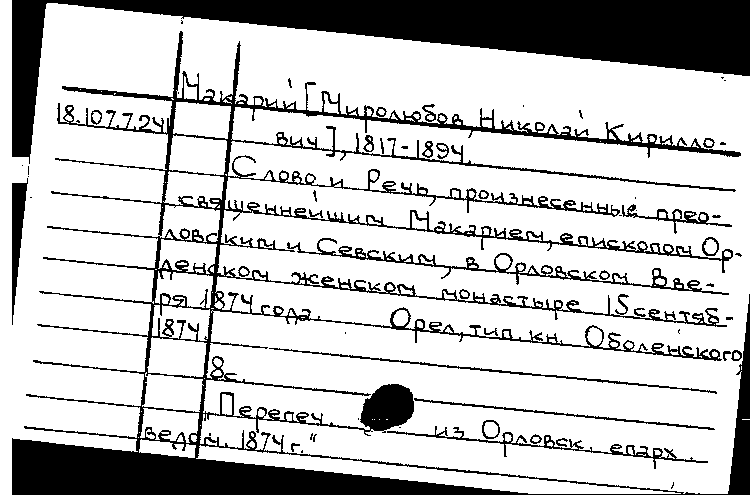 Макарий [Миролюбов, Николай Кирилло-
18.107.7.241 вич], 1817-1894.
Слово и Речь, произнесенные прео-
священнейшим Макарием, епископом Ор-
ловским и Севским, в Орловском Вве-
денском женском монастыре 15 сентяб-
ря 1874 года. Орел, тип. кн. Оболенского,
1874.
8с.
"Перепеч. из Орловск. епарх.
ведом. 1874 г."